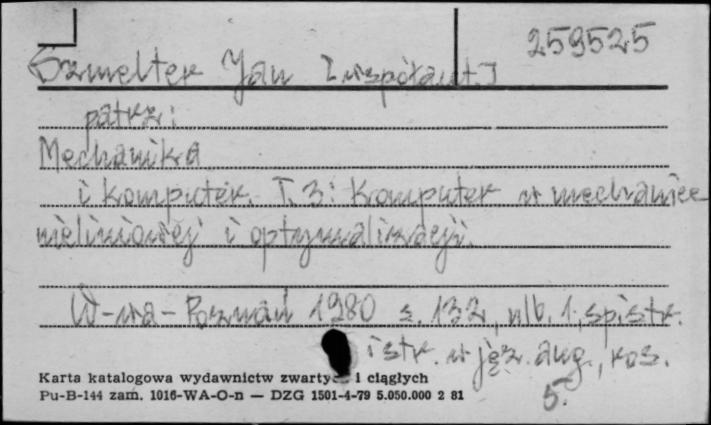 259525
Szmelter Jan [współaut.]
patrz:
Mechanika
i komputer. T. 3: Komputer w mechanice
nieliniowej i optymalizacji.
W-wa - Poznań 1980 s. 132, nlb. 1, spis tr.
i str. w jęz. ang., ros.
5.
Karta katalogowa wydawnictw zwartych i ciągłych
Pu-B-144 zam. 1016-WA-O-n — DZG 1501-4-79 5.050.000 2 81